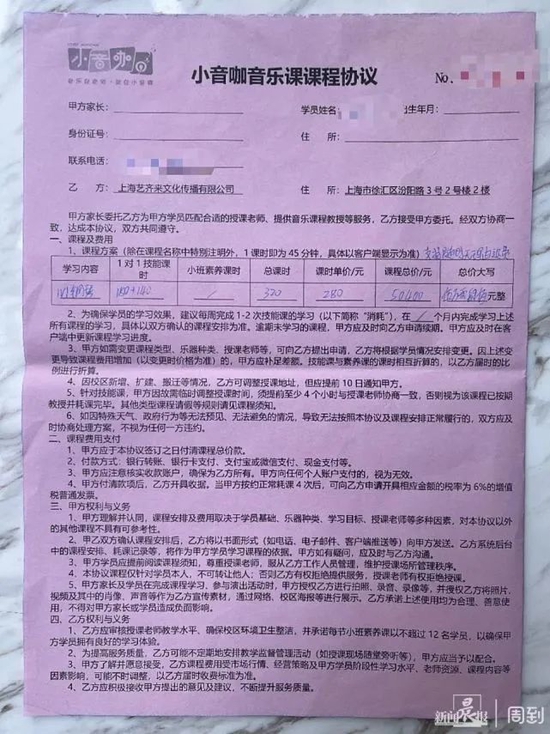 小音咖
小音咖音乐课课程协议
No.
甲方家长：
学员姓名
生年月：
身份证号：
住 所：
联系电话：
乙 方：上海艺齐来文化传播有限公司
住 所：上海市徐汇区汾阳路3号2号楼2楼
甲方家长委托乙方为甲方学员匹配合适的授课老师、提供音乐课程教授等服务，乙方接受甲方委托。经双方协商一
致，达成本协议，双方共同遵守。
一、课程及费用
1、课程方案（除在课程名称中特别注明外，1课时即为45分钟，具体以客户端显示为准）
学习内容 1对1技能课时 小班素养课时 总课时 课时单价/元 课程总价/元 总价大写
/ 280 元整
2、为确保学员的学习效果，建议每周完成1-2次技能课的学习（以下简称“消耗”），在 / 个月内完成学习上
述所有课程的学习，具体以双方确认的课程安排为准。逾期未学习的课程，甲方应及时向乙方申请续期。甲方应及时在客
户端中更新课程学习进度。
3、甲方如需变更课程类型、乐器种类、授课老师等，可向乙方提出申请，乙方将根据学员情况安排变更。因上述变
更导致课程费用增加（以变更时价格为准）的，甲方应补足差额。技能课与素养课的课时相当折算的，以乙方届时的比
例进行折算。
4、因校区新增、扩建、搬迁等情况，乙方可调整授课地址，但应提前10日通知甲方。
5、针对技能课，甲方因故需临时调整授课时间，须提前至少4个小时与授课老师协商一致，否则视为该课程已按期
教授并耗课完毕。其他类型课程请假等规则请见课程须知。
6、如因特殊天气、政府行为等无法预见、无法避免的情况，导致无法按照本协议及课程安排正常履行的，双方应及
时协商处理方案，不视为任何一方违约。
二、课程费用支付
1、甲方应于本协议签订之日付清课程总价款。
2、付款方式：银行转账、银行卡支付、支付宝或微信支付、现金支付等。
3、甲方应注意核实收款账户，确保为乙方所有。甲方向任何个人账户支付的，视为无效。
4、甲方付清款项后，乙方开具收据。当甲方按约正常耗课4次后，可向乙方申请开具相应金额的税率为6%的增值
税普通发票。
三、甲方权利与义务
1、甲方理解并认同，课程安排及费用取决于学员基础、乐器种类、学习目标、授课老师等多种因素，对本协议以外
的其他课程不具有可参考性。
2、甲乙双方确认课程安排后，乙方将以书面形式（如电话、电子邮件、客户端推送等）向甲方发送。乙方系统后台
中的课程安排、耗课记录等，将作为甲方学员学习课程的依据。甲方如有疑问，应及时与乙方沟通。
3、甲方学员应提前阅读课程须知，尊重授课老师，服从乙方工作人员管理，维护授课场所管理秩序。
4、本协议课程仅针对学员本人，不可转让他人；否则乙方有权拒绝提供服务，授课老师有权拒绝授课。
5、甲方家长及学员在完成课程学习、参与演出活动时，甲方授权乙方进行拍照、录音、录像等，并授权乙方将照片、
视频及其中的肖像、声音等作为乙方宣传素材，通过网络、校区海报等进行展示。乙方承诺上述使用均为合理、善意使
用，不得对甲方家长或学员造成负面影响。
四、乙方权利与义务
1、乙方应审核授课老师教学水平、确保校区环境卫生整洁，并承诺每节小班素养课以不超过12名学员，以确保甲
方学员拥有良好的学习体验。
2、为提高服务质量，乙方可能不定期地安排教学监督管理活动（如授课现场随堂旁听等），甲方应当予以配合。
3、甲方了解并愿意接受，乙方课程费用受市场行情、经营策略及甲方学员阶段性学习水平、老师资源、课程内容等
因素影响，可能不时调整，以乙方届时收费标准为准。
4、乙方应积极接收甲方提出的意见及建议，不断提升服务质量。
新闻晨报 周到